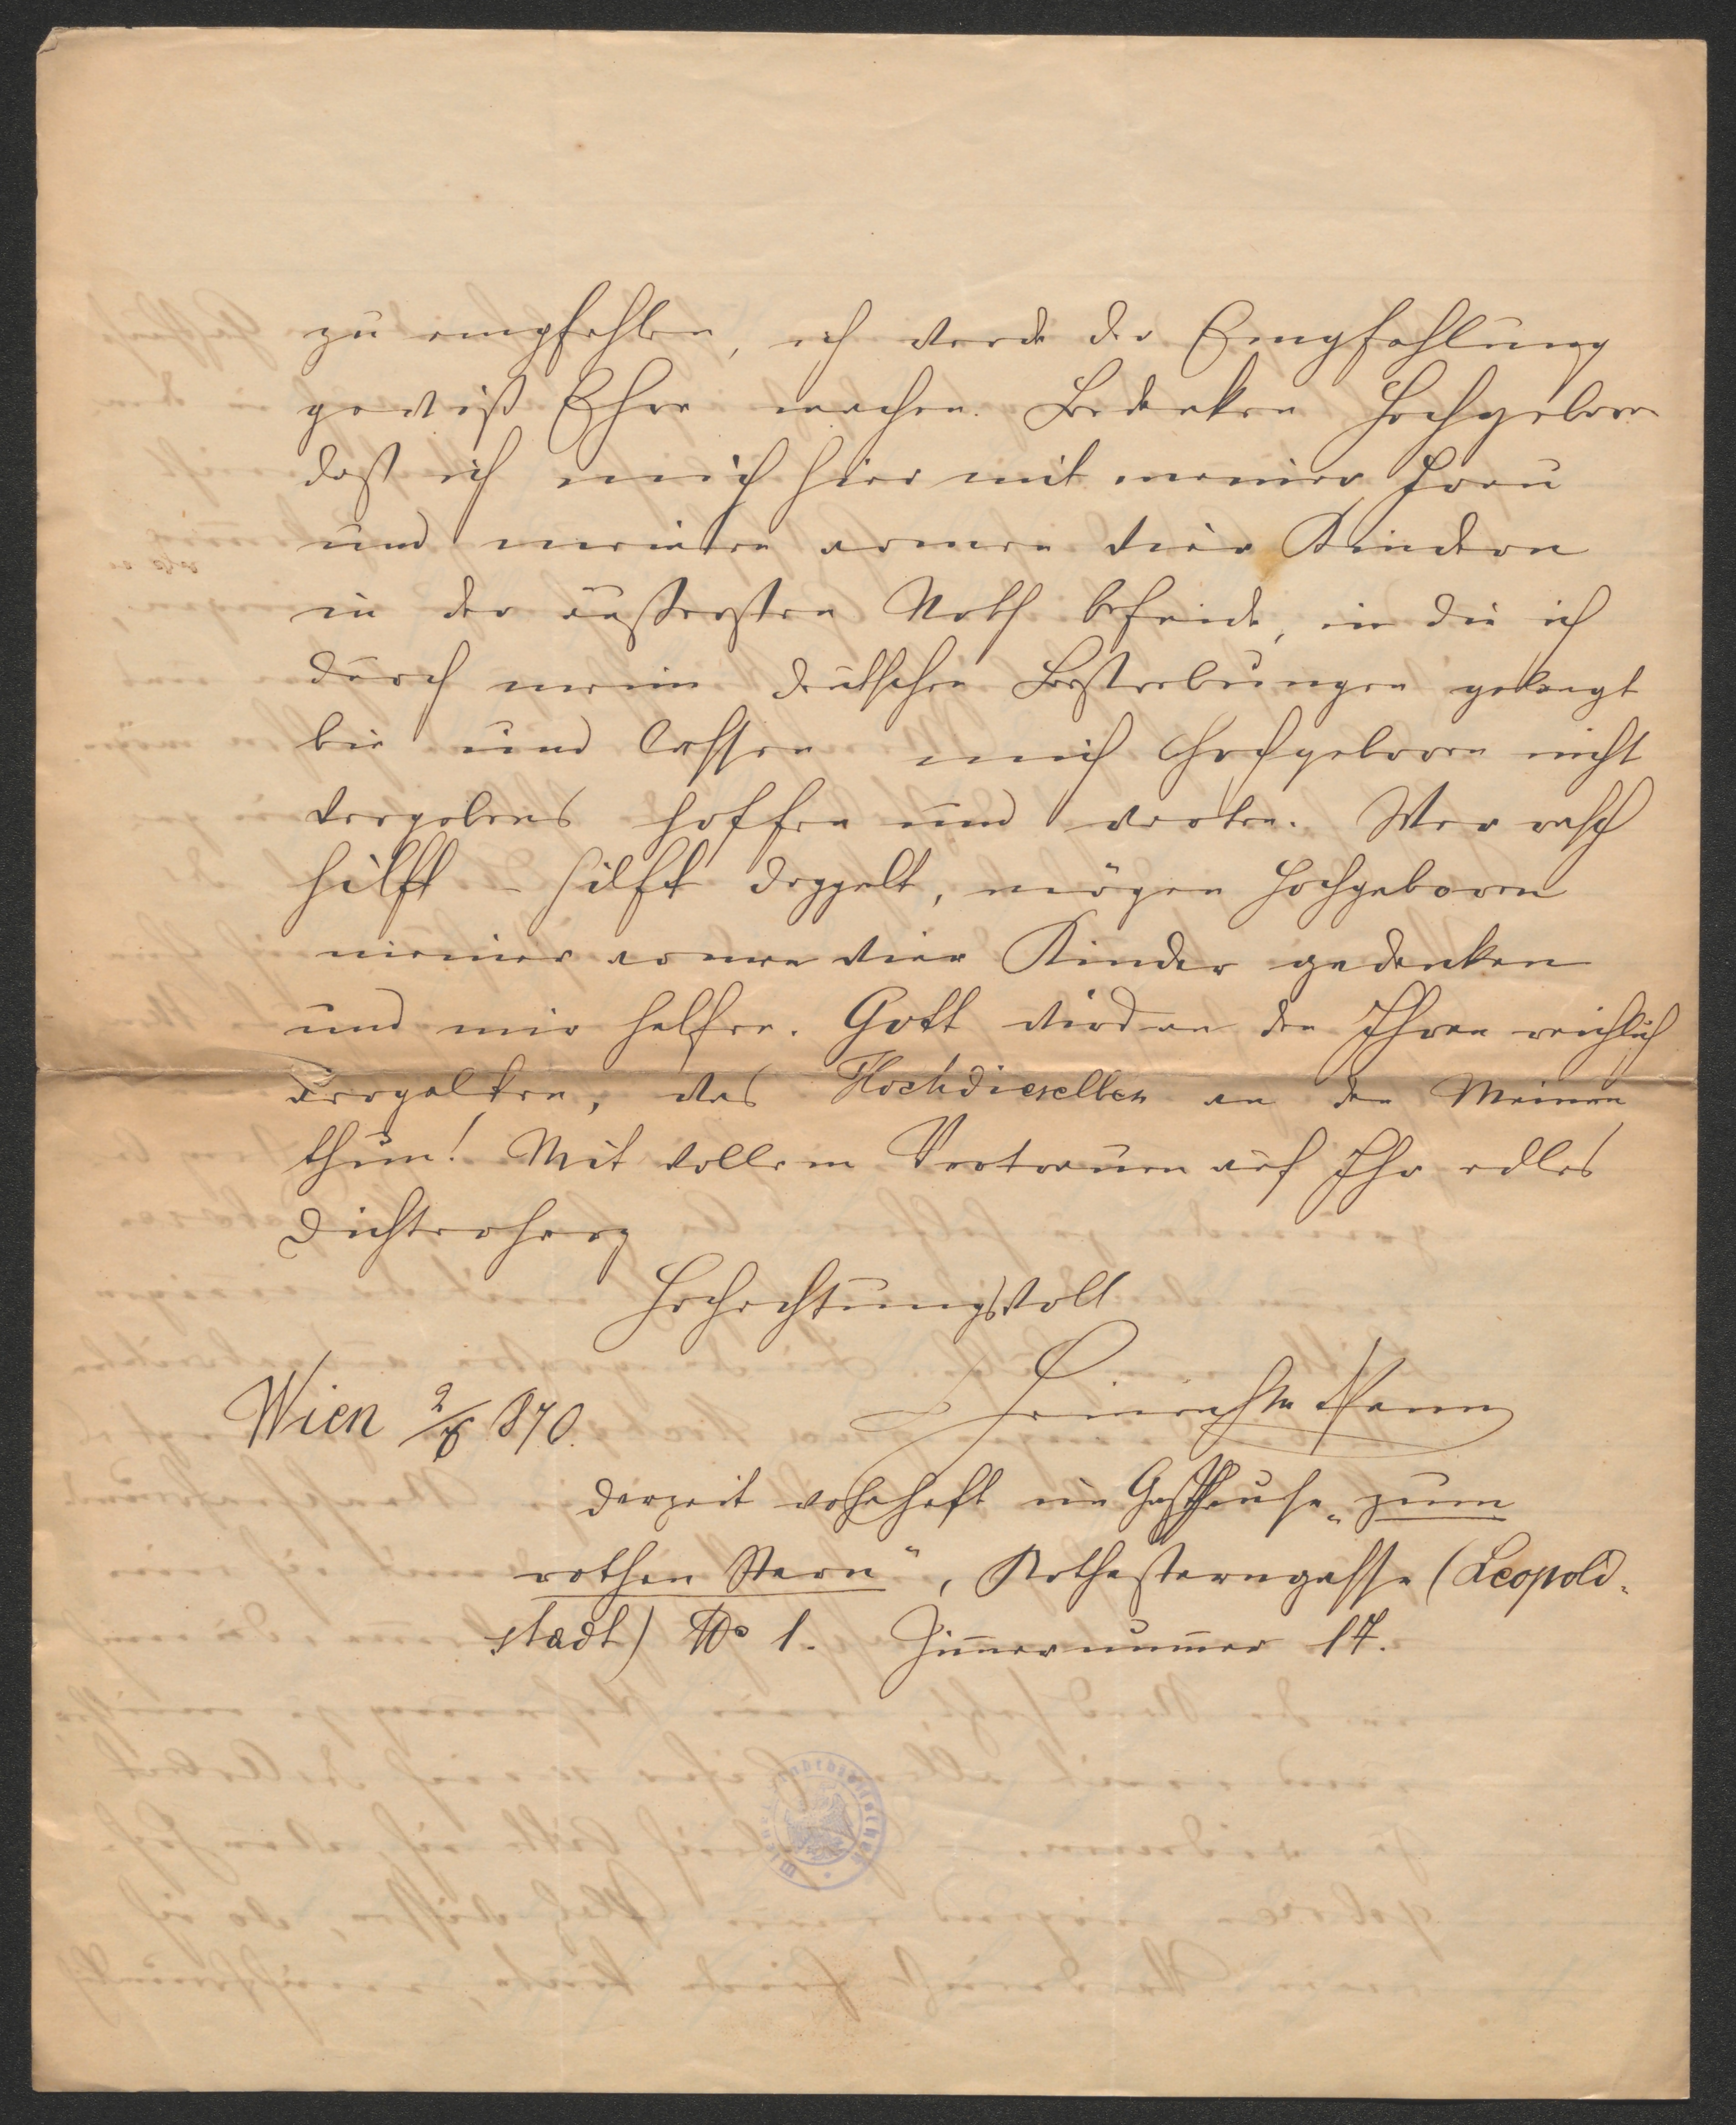 zu empfehlen, ich werde der Empfehlung
gewiß Ehre machen. Bedenken Hochgeboren
daß ich mich hier mit meiner Frau
und meinen armen vier Kindern
in der äußersten Noth befinde, in die ich
durch meine deutschen Bestrebungen gelangt
bin und lassen mich Hochgeboren nicht
vergebens hoffen und warten. Wer rasch
hilft – hilft doppelt, mögen Hochgeboren
meiner armen vier Kinder gedenken
und mir helfen. Gott wird an den Ihren reichlich
vergelten, was Hochdieselben an den Meinen
thun! Mit vollem Vertrauen auf Ihr edles
Dichterherz
Hochachtungsvoll
Wien 2/8 870.
derzeit wohnhaft im Gasthause „zum
rothen Stern“, Rothesterngasse (Leopold-
stadt) No 1. Zim̄ernum̄er 17.